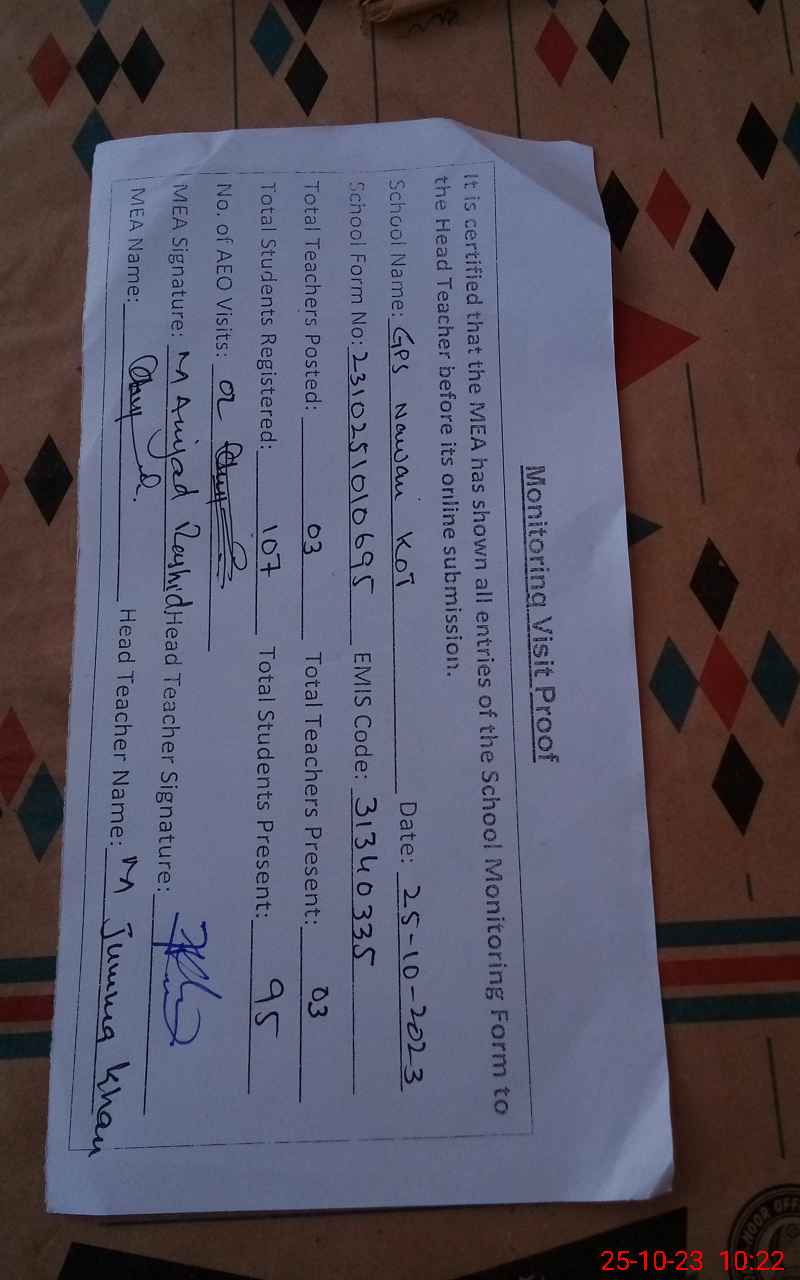 Monitoring Visit Proof
It is certified that the MEA has shown all entries of the School Monitoring Form to
the Head Teacher before its online submission.
School Name: GPS Nawan Kot Date: 25-10-2023
School Form No: 231025101010695 EMIS Code: 31340335
Total Teachers Posted: 03 Total Teachers Present: 03
Total Students Registered: 107 Total Students Present: 95
No. of AEO Visits: 02
MEA Signature: M Amjad Rashid Head Teacher Signature:
MEA Name: Head Teacher Name: M Jumma Khan
NOOR OFF
25-10-23 10:22